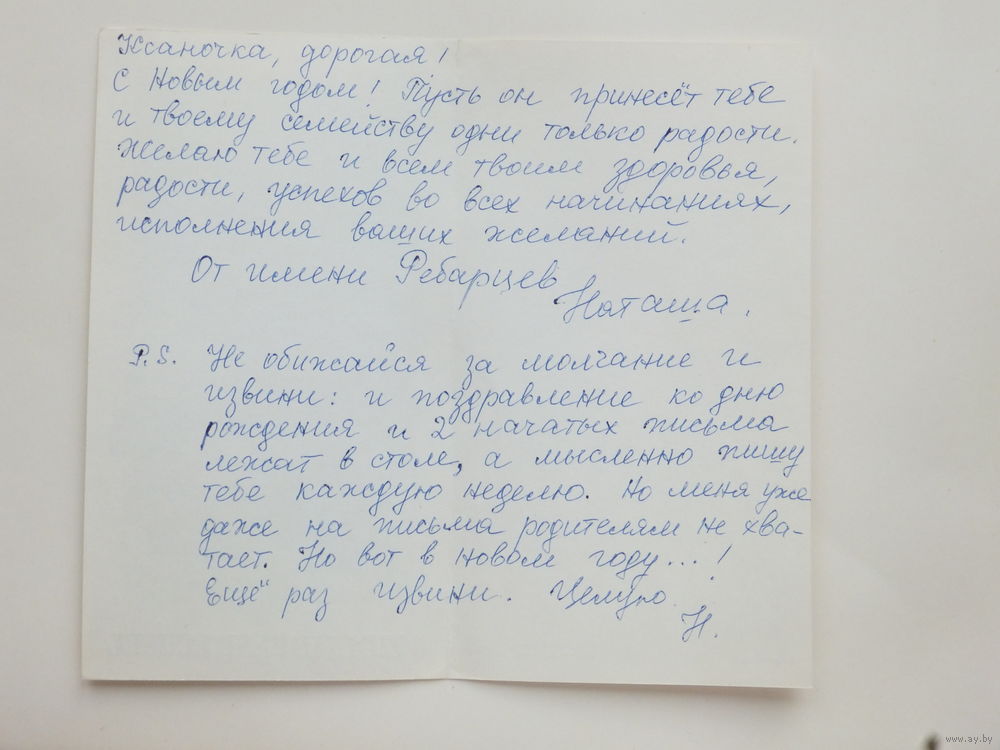 Ксаночка, дорогая!
С Новым годом! Пусть он принесёт тебе
и твоему семейству одни только радости.
Желаю тебе и всем твоим здоровья,
радости, успехов во всех начинаниях,
исполнения ваших желаний.
От имени Ребарцев
Наташа.
P.S. Не обижайся за молчание и
извини: и поздравление ко дню
рождения и 2 начатых письма
лежат в столе, а мысленно пишу
тебе каждую неделю. Но меня уже
даже на письма родителям не хва-
тает. Но вот в новом году...!
Ещё раз извини. Целую
Н.
www.ay.by